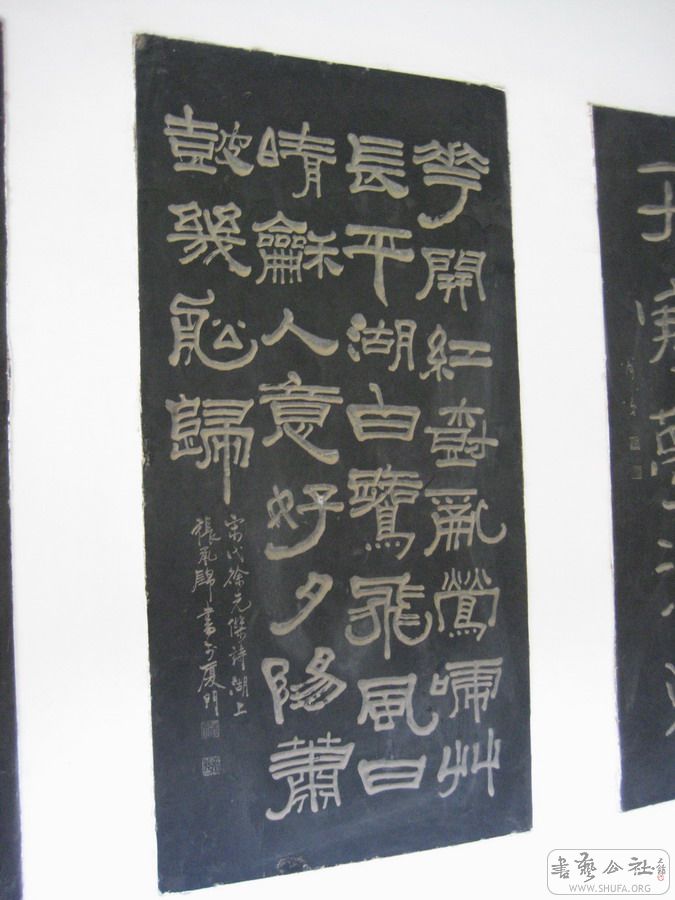 花開紅樹亂鶯啼艸
長平湖白鷺飛風日
晴龢人意好夕陽蕭
鼓幾舩歸
宋代徐元傑詩湖上
張承錦書於廈門
書藝公社
WWW.SHUFA.ORG